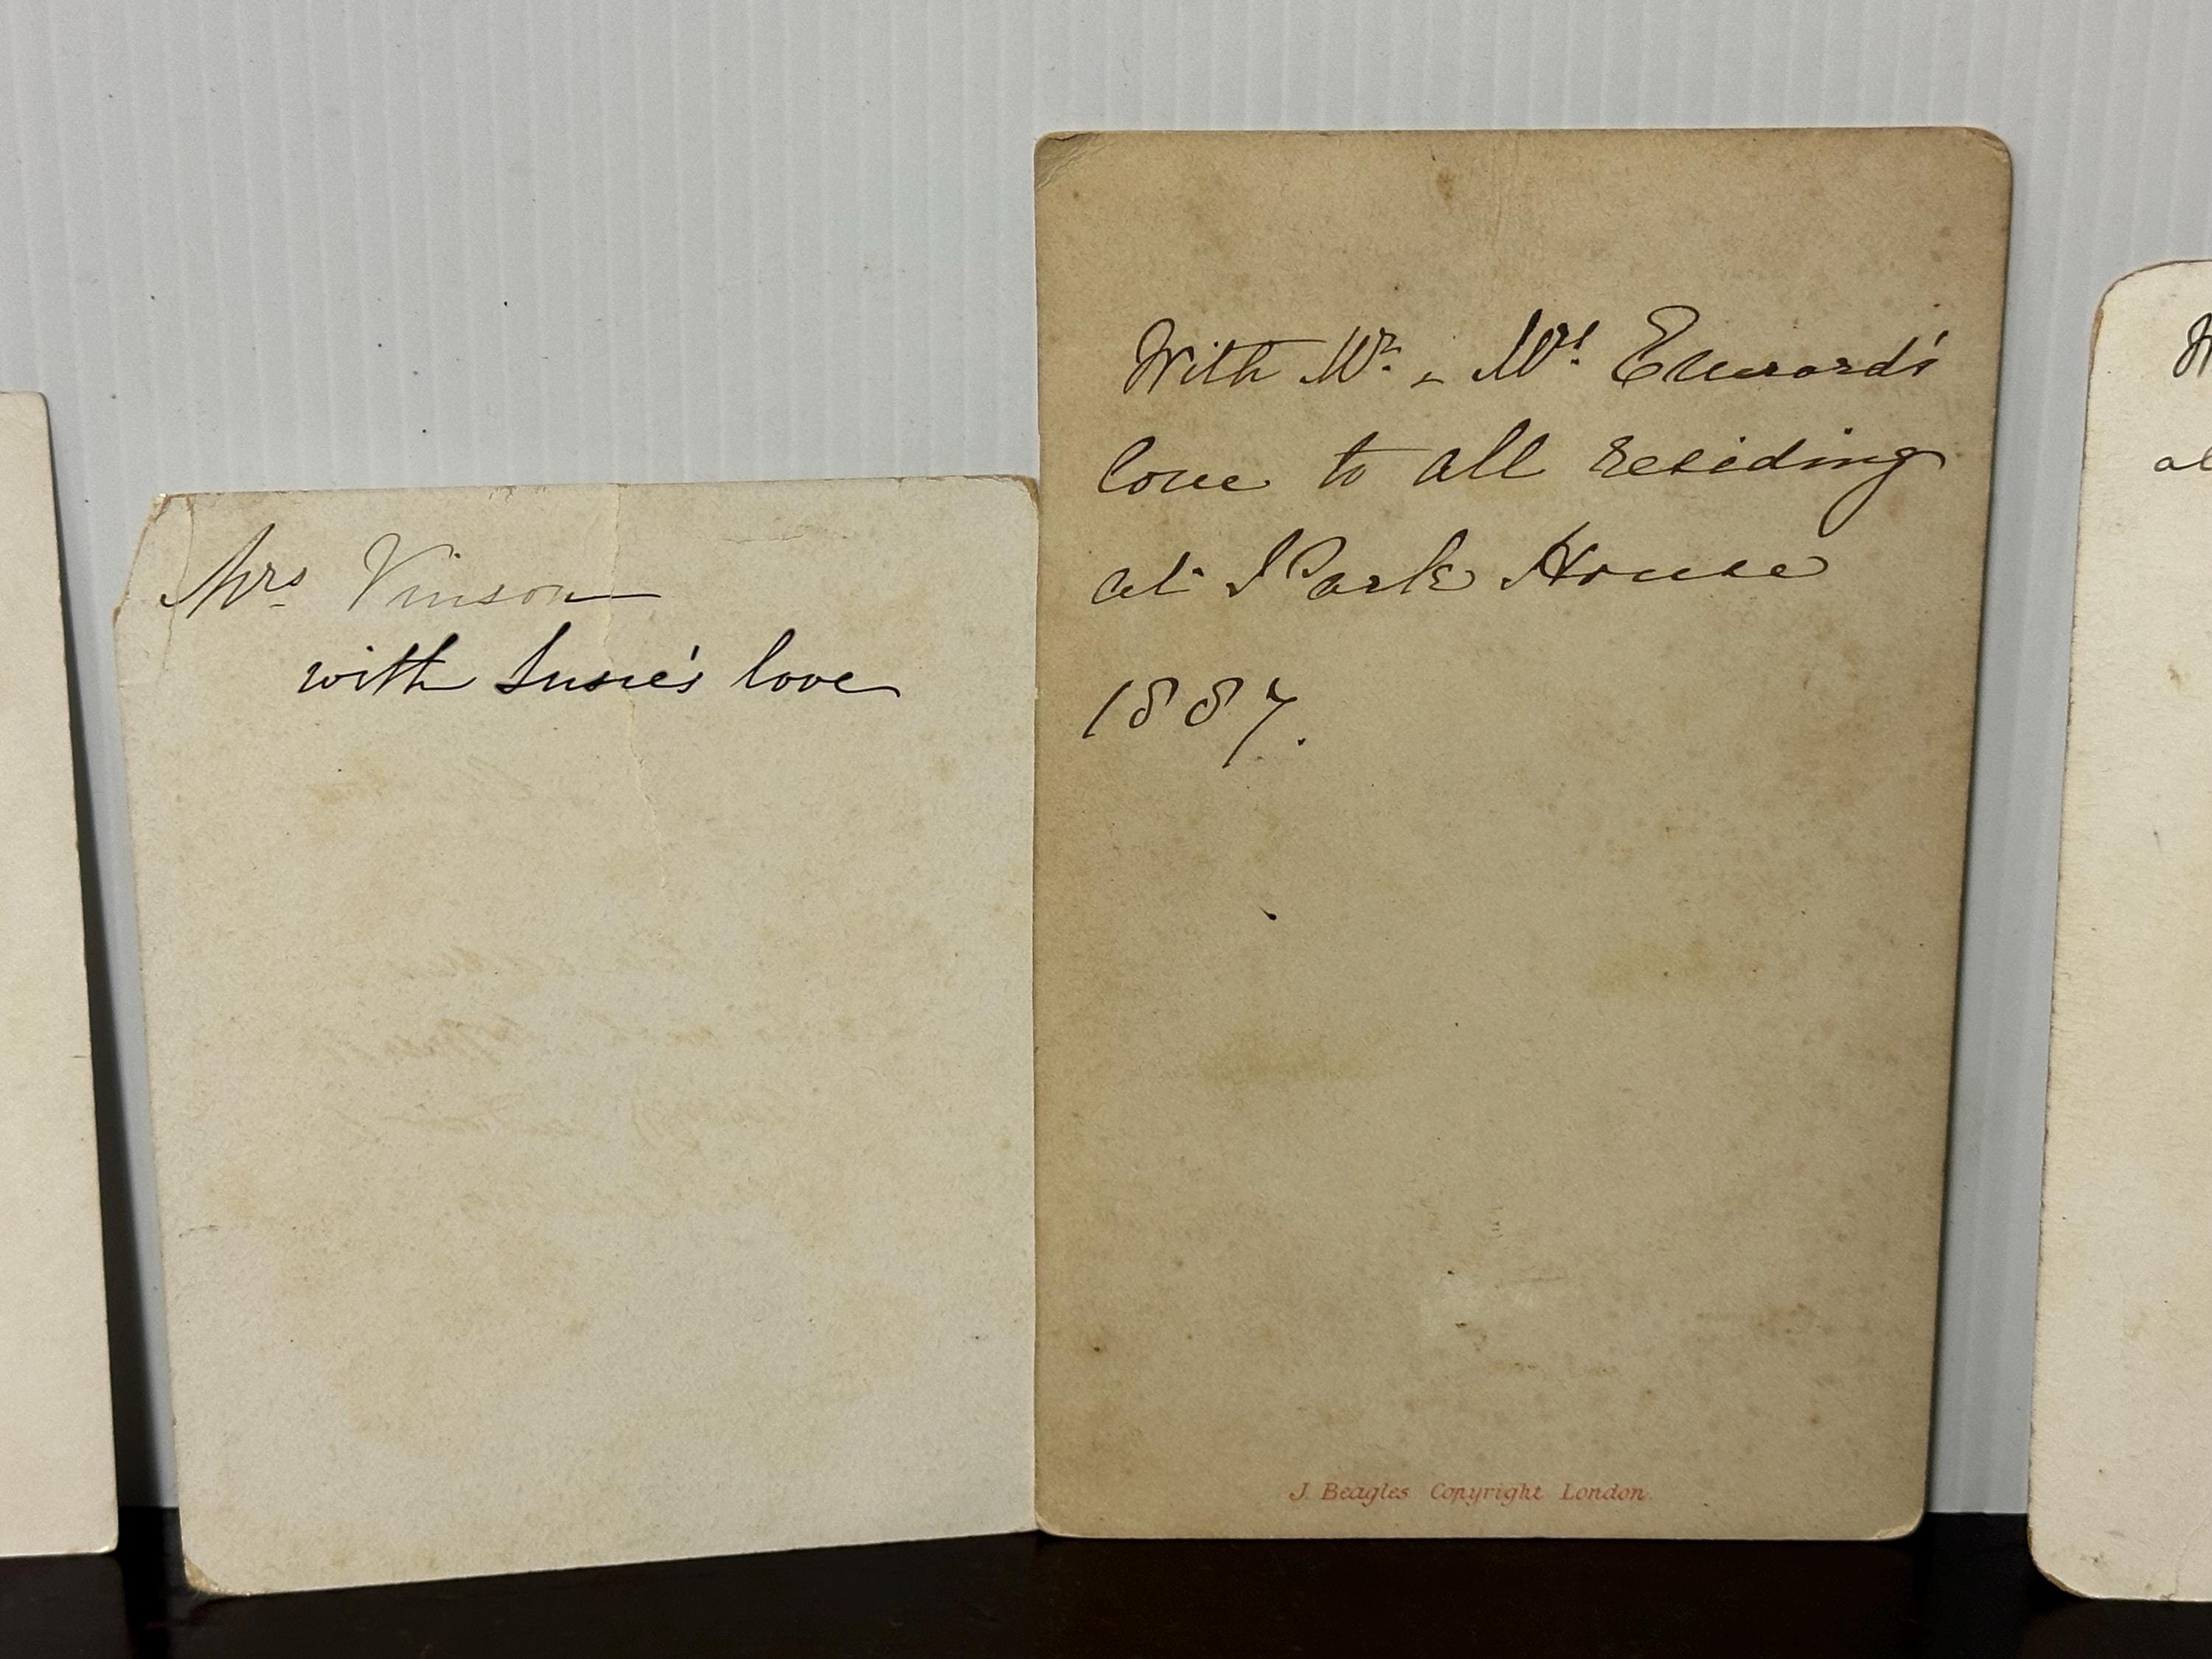 Mrs Vinson
with Susie's love
With Mr. & Mrs. Edward's
love to all residing
at Park House
1887.
J. Beagles Copyright London.